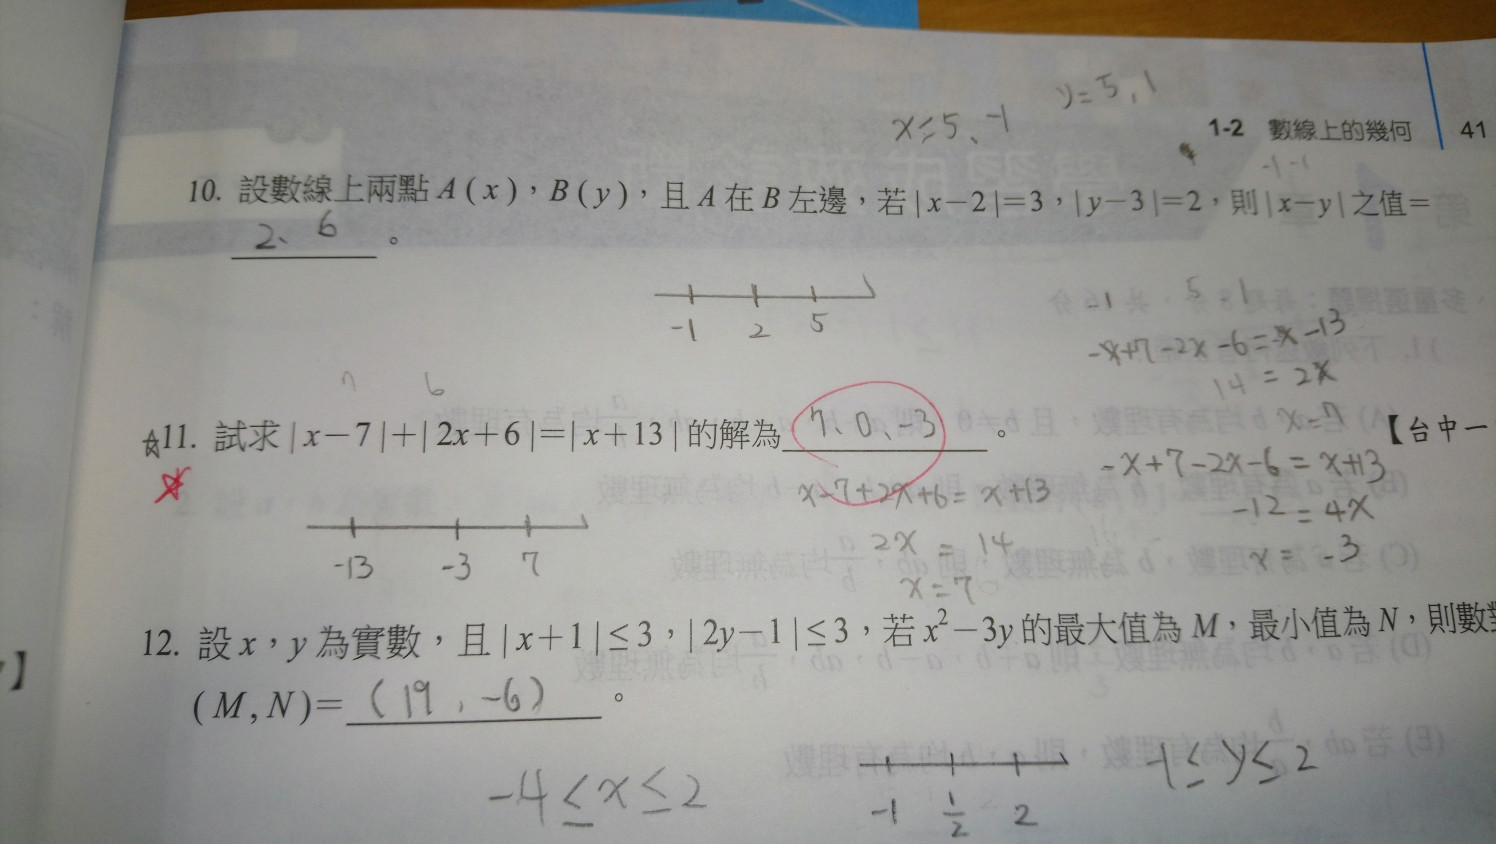 x≤5、-1 y=5,1
1-2 數線上的幾何 41
-1 -1
10. 設數線上兩點 A(x)，B(y)，且 A 在 B 左邊，若|x-2|=3，|y-3|=2，則|x-y|之值=
2、6。
-1 2 5
-1 5 -1
-x+7-2x-6=-x-13
14=2x
x=7
7 6
☆11. 試求|x-7|+|2x+6|=|x+13|的解為 7、0、-3。
【台中一
-x+7-2x-6=x+13
-12=4x
x=-3
x-7+2x+6=x+13
2x=14
x=7
-13 -3 7
12. 設 x，y 為實數，且|x+1|≤3，|2y-1|≤3，若 x²-3y 的最大值為 M，最小值為 N，則數
(M,N)=(19,-6)。
-4≤x≤2
-1 1/2 2
-1≤y≤2
】